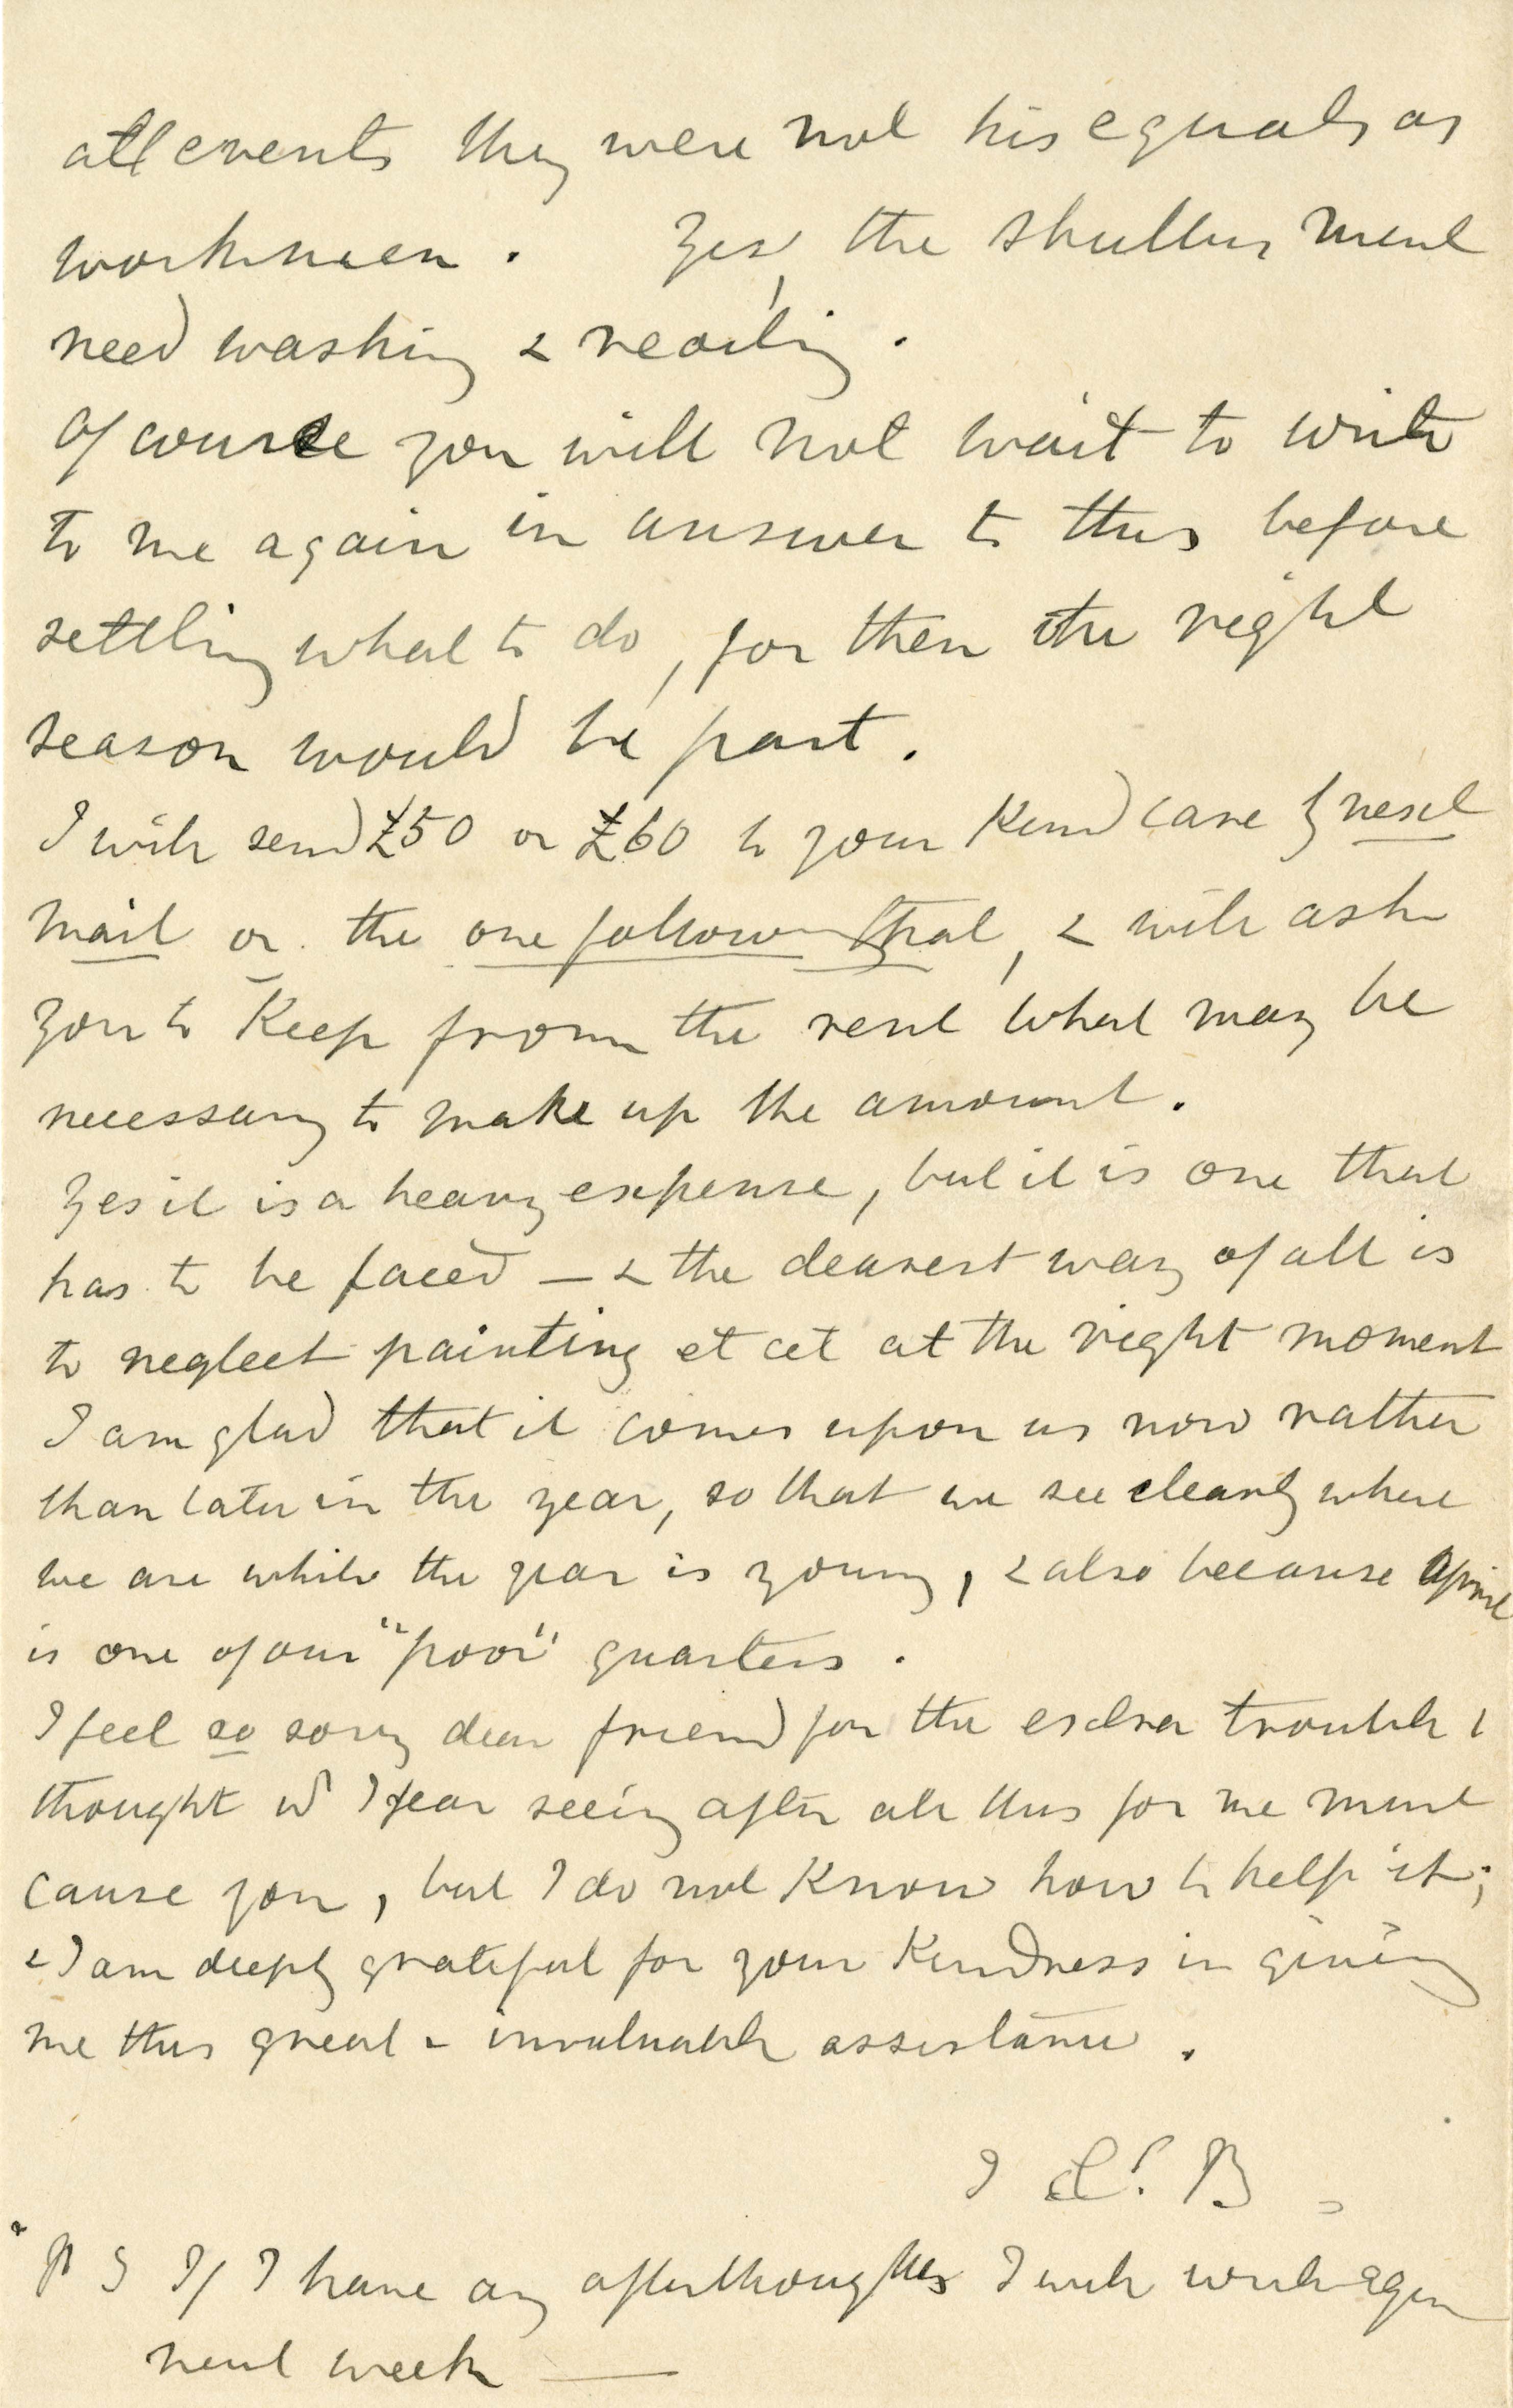 all events they were not his equals as
workmen. Yes, the shutters must
need washing &
Of course you will not wait to write
to me again in answer to this before
settling what to do, for then the right
season would be past.
I will send £50 or £60 to your kind care by next
mail or the one following that, & will ask
you to keep from the rent what may be
necessary to make up the amount.
Yes it is a heavy expense, but it is one that
has to be faced — & the dearest way of all is
to neglect painting et cet at the right moment
I am glad that it comes upon us now rather
than later in the year, so that we see clearly where
we are while the year is young, & also because April
is one of our "poor" quarters.
I feel so sorry dear friend for the extra trouble &
thought wd I fear seeing after all this for me must
cause you, but I do not know how to help it;
& I am deeply grateful for your kindness in giving
me this great & invaluable assistance.
B
PS If I have any afterthoughts I will write again
next week —